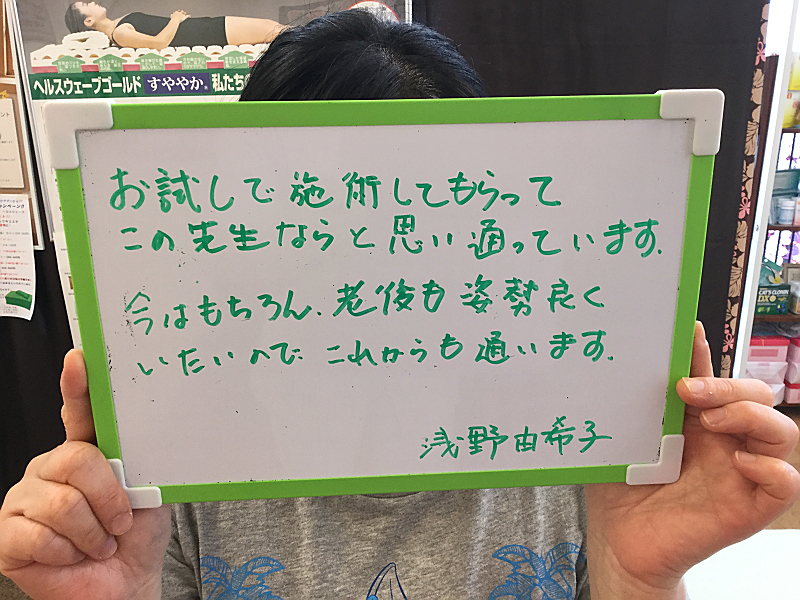 ヘルスウェーブゴールド すややか 私たちの
お試しで施術してもらって
この先生ならと思い通っています.
今はもちろん、老後も姿勢良く
いたいので これからも通います.
浅野由希子
CAT'S CLOW
DX